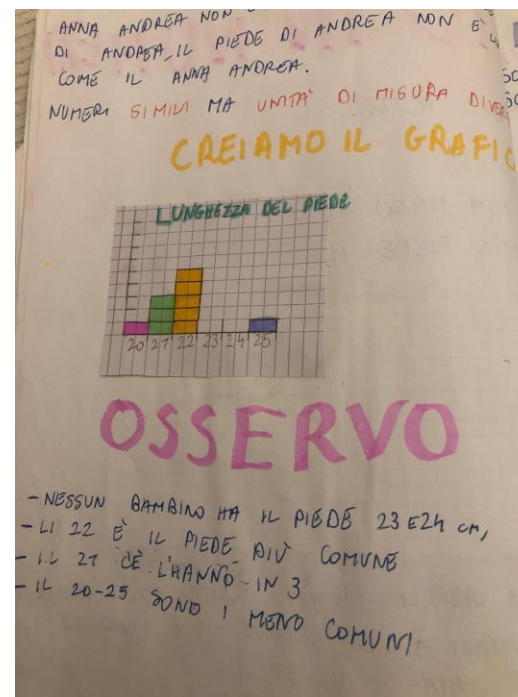 ANNA ANDREA NON
DI ANDREA, IL PIEDE DI ANDREA NON È
COME IL ANNA ANDREA.
NUMERI SIMILI MA UNITÀ DI MISURA
CREIAMO IL GRAFIC
LUNGHEZZA DEL PIEDE
20 21 22 23 24 25
OSSERVO
- NESSUN BAMBINO HA IL PIEDE 23 E 24 cm,
- LI 22 È IL PIEDE PIÙ COMUNE
- IL 21 CE L'HANNO IN 3
- IL 20-25 SONO I MENO COMUNI